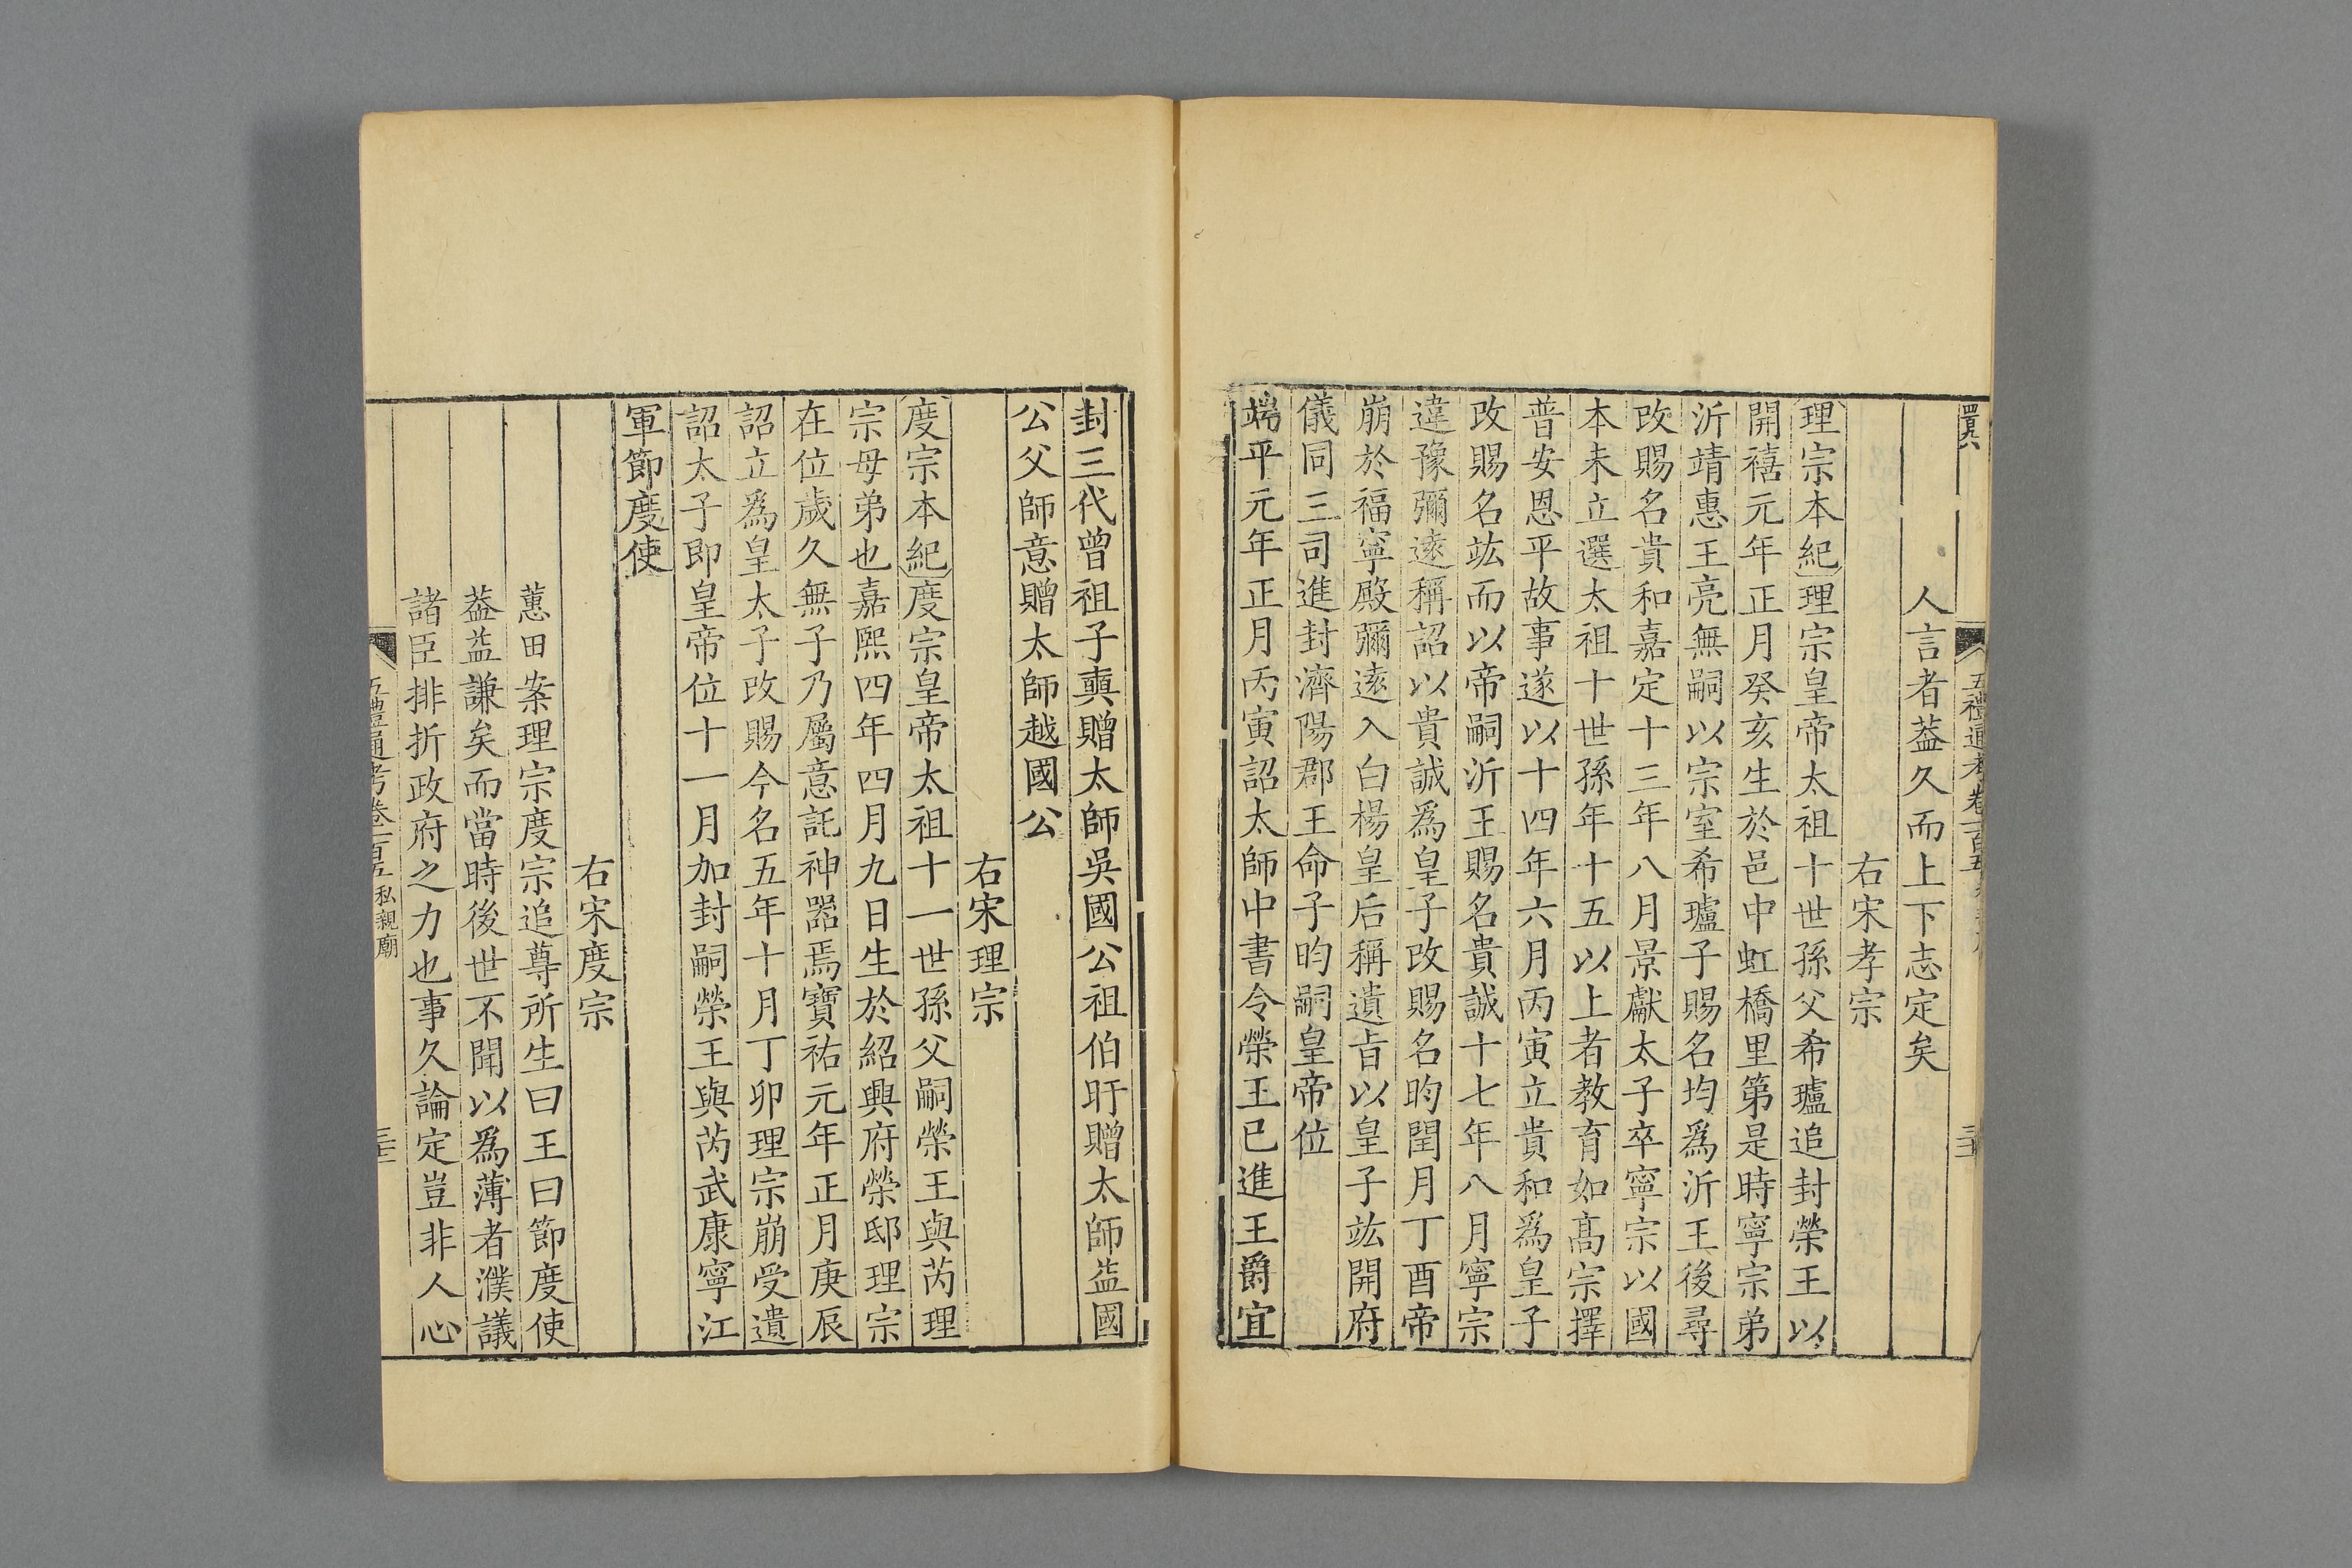 人言者葢久而上下志定矣
右宋孝宗
理宗本紀理宗皇帝太祖十世孫父希瓐追封榮王以
開禧元年正月癸亥生於邑中虹橋里第是時寧宗弟
沂靖惠王亮無嗣以宗室希瓐子賜名均爲沂王後尋
改賜名貴和嘉定十三年八月景獻太子卒寧宗以國
本未立選太祖十世孫年十五以上者教育如髙宗擇
普安恩平故事遂以十四年六月丙寅立貴和爲皇子
改賜名竑而以帝嗣沂王賜名貴誠十七年八月寧宗
違豫彌逺稱詔以貴誠爲皇子改賜名昀閏月丁酉帝
崩於福寧殿彌逺入白楊皇后稱遺旨以皇子竑開府
儀同三司進封濟陽郡王命子昀嗣皇帝位
端平元年正月丙寅詔太師中書令榮王已進王爵宜
封三代曾祖子奭贈太師吳國公祖伯旴贈太師益國
公父師意贈太師越國公
右宋理宗
度宗本紀度宗皇帝太祖十一世孫父嗣榮王與芮理
宗母弟也嘉熙四年四月九日生於紹興府榮邸理宗
在位歲久無子乃屬意託神器焉寶祐元年正月庚辰
詔立爲皇太子改賜今名五年十月丁卯理宗崩受遺
詔太子即皇帝位十一月加封嗣榮王與芮武康寧江
軍節度使
右宋度宗
蕙田案理宗度宗追尊所生曰王曰節度使
葢益謙矣而當時後世不聞以爲薄者濮議
諸臣排折政府之力也事久論定豈非人心
五禮通考卷一百五 私親廟